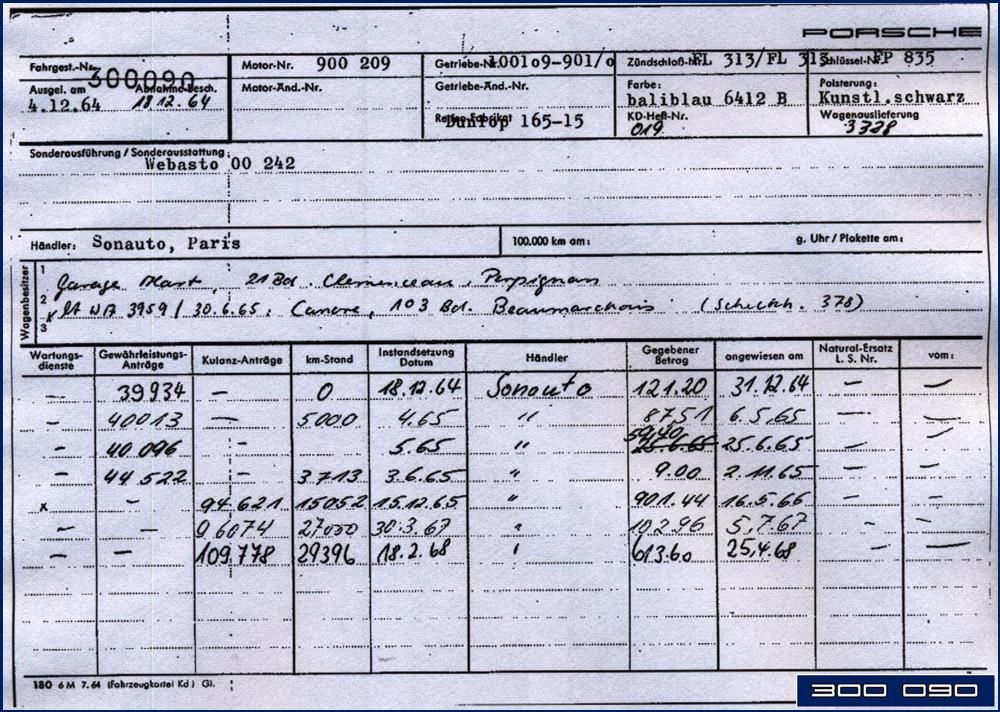 PORSCHE
Fahrgest.-Nr. 300090
Motor-Nr. 900 209
Getriebe-Nr. 100109-901/0
Zündschloß-Nr. FL 313/FL 313
Schlüssel-Nr. FP 835
Ausgel. am 4.12.64
Abnahme-Besch. 18 12. 64
Motor-Änd.-Nr.
Getriebe-Änd.-Nr.
Farbe: baliblau 6412 B
Polsterung: Kunstl.schwarz
Reifen-Fabrikat Dunlop 165-15
KD-Heft-Nr. 019
Wagenauslieferung 3328
Sonderausführung / Sonderausstattung:
Webasto 00 242
Händler: Sonauto, Paris
100.000 km am:
g. Uhr / Plakette am:
Wagenbesitzer
1 Garage 21 Bd. Clemenceau, Perpignan
2 WA 3959 / 30.6.65: 103 Bd. Beaumarchais 378)
3
Wartungsdienste Gewährleistungs-Anträge Kulanz-Anträge km-Stand Instandsetzung Datum Händler Gegebener Betrag angewiesen am Natural-Ersatz L. S. Nr. vom:
– 39934 – 0 18.12.64 Sonauto 121.20 31.12.64 – –
– 40013 – 5000 4.65 " 87.51 6.5.65 – –
– 40 096 – 5.65 " 25.6.65 – –
– 44 522 – 3713 3.6.65 " 9.00 2.11.65 – –
x – 94 621 15052 15.12.65 " 901.44 16.5.66 – –
– – 96074 27000 30.3.67 " 102.96 5.7.67 – –
– – 109.778 29396 18.2.68 " 613.60 25.4.68 – –
180 6 M 7. 64 (Fahrzeugkartei Kd) Gl.
300 090